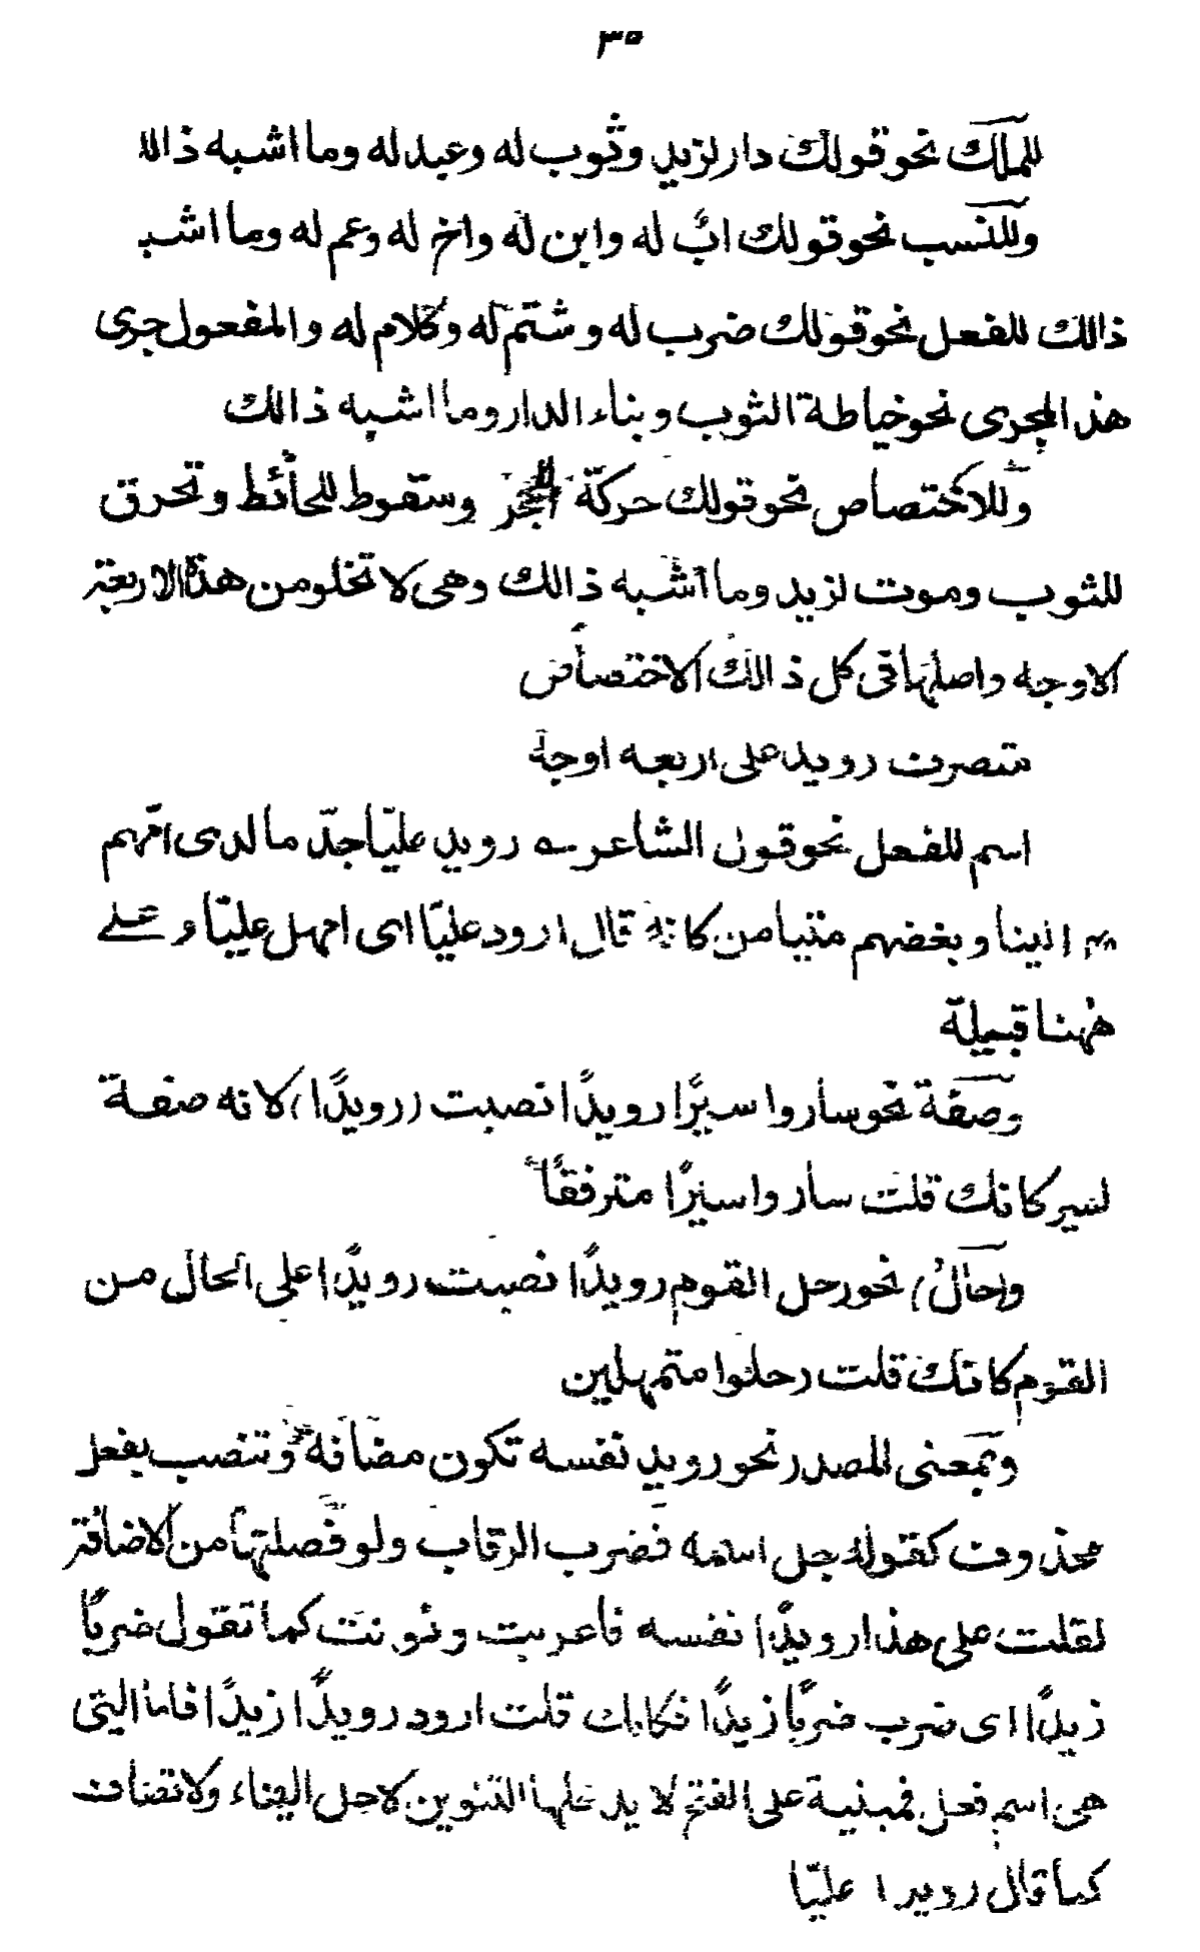 ٣٥
للملك نحو قولك دار لزيد وثوب له وعبد له وما اشبه ذالك
وللنسب نحو قولك ابٌ له وابن له واخ له وعم له وما اشبه
ذالك للفعل نحو قولك ضرب له وشتم له وكلام له والمفعول جرى
هذ المجرى نحو خياطة الثوب وبناء الدار وما اشبه ذالك
وللاختصاص نحو قولك حركة الحجر وسقوط للحائط وتحرق
للثوب وموت لزيد وما اشبه ذالك وهى لا تخلو من هذه الاربعة
الاوجه واصلها فى كل ذالك الاختصاص
تتصرف رويد على اربعه اوجه
اسم للفعل نحو قول الشاعر ـه رويد عليّا جدّ ما لدى امهم
الينا وبغضهم متيامن كانه قال ارود عليّا اى امهل عليّا و على
ههنا قبيلة
وصفة نحو ساروا سيرًا رويدًا نصبت (رويدًا) لانه صفة
لسير كانك قلت ساروا سيرًا مترفقًا
وحال نحو رحل القوم رويدًا نصبت رويدًا على الحال من
القوم كانك قلت رحلوا متمهلين
وبمعنى المصدر نحو رويد نفسه تكون مضافة وتنصب بفعل
محذوف كقوله جل اسمه فضرب الرقاب ولو فصلتها من الاضافة
لقلت على هذا رويدًا نفسه فاعربت ونونت كما تقول ضربًا
زيدًا اى ضرب ضربًا زيدًا فكانك قلت ارود رويدًا زيدًا فاما التى
هى اسم فعل فمبنية على الفتح لا يدخلها التنوين لاجل البناء ولا تضاف
كما قال رويدا عليّا